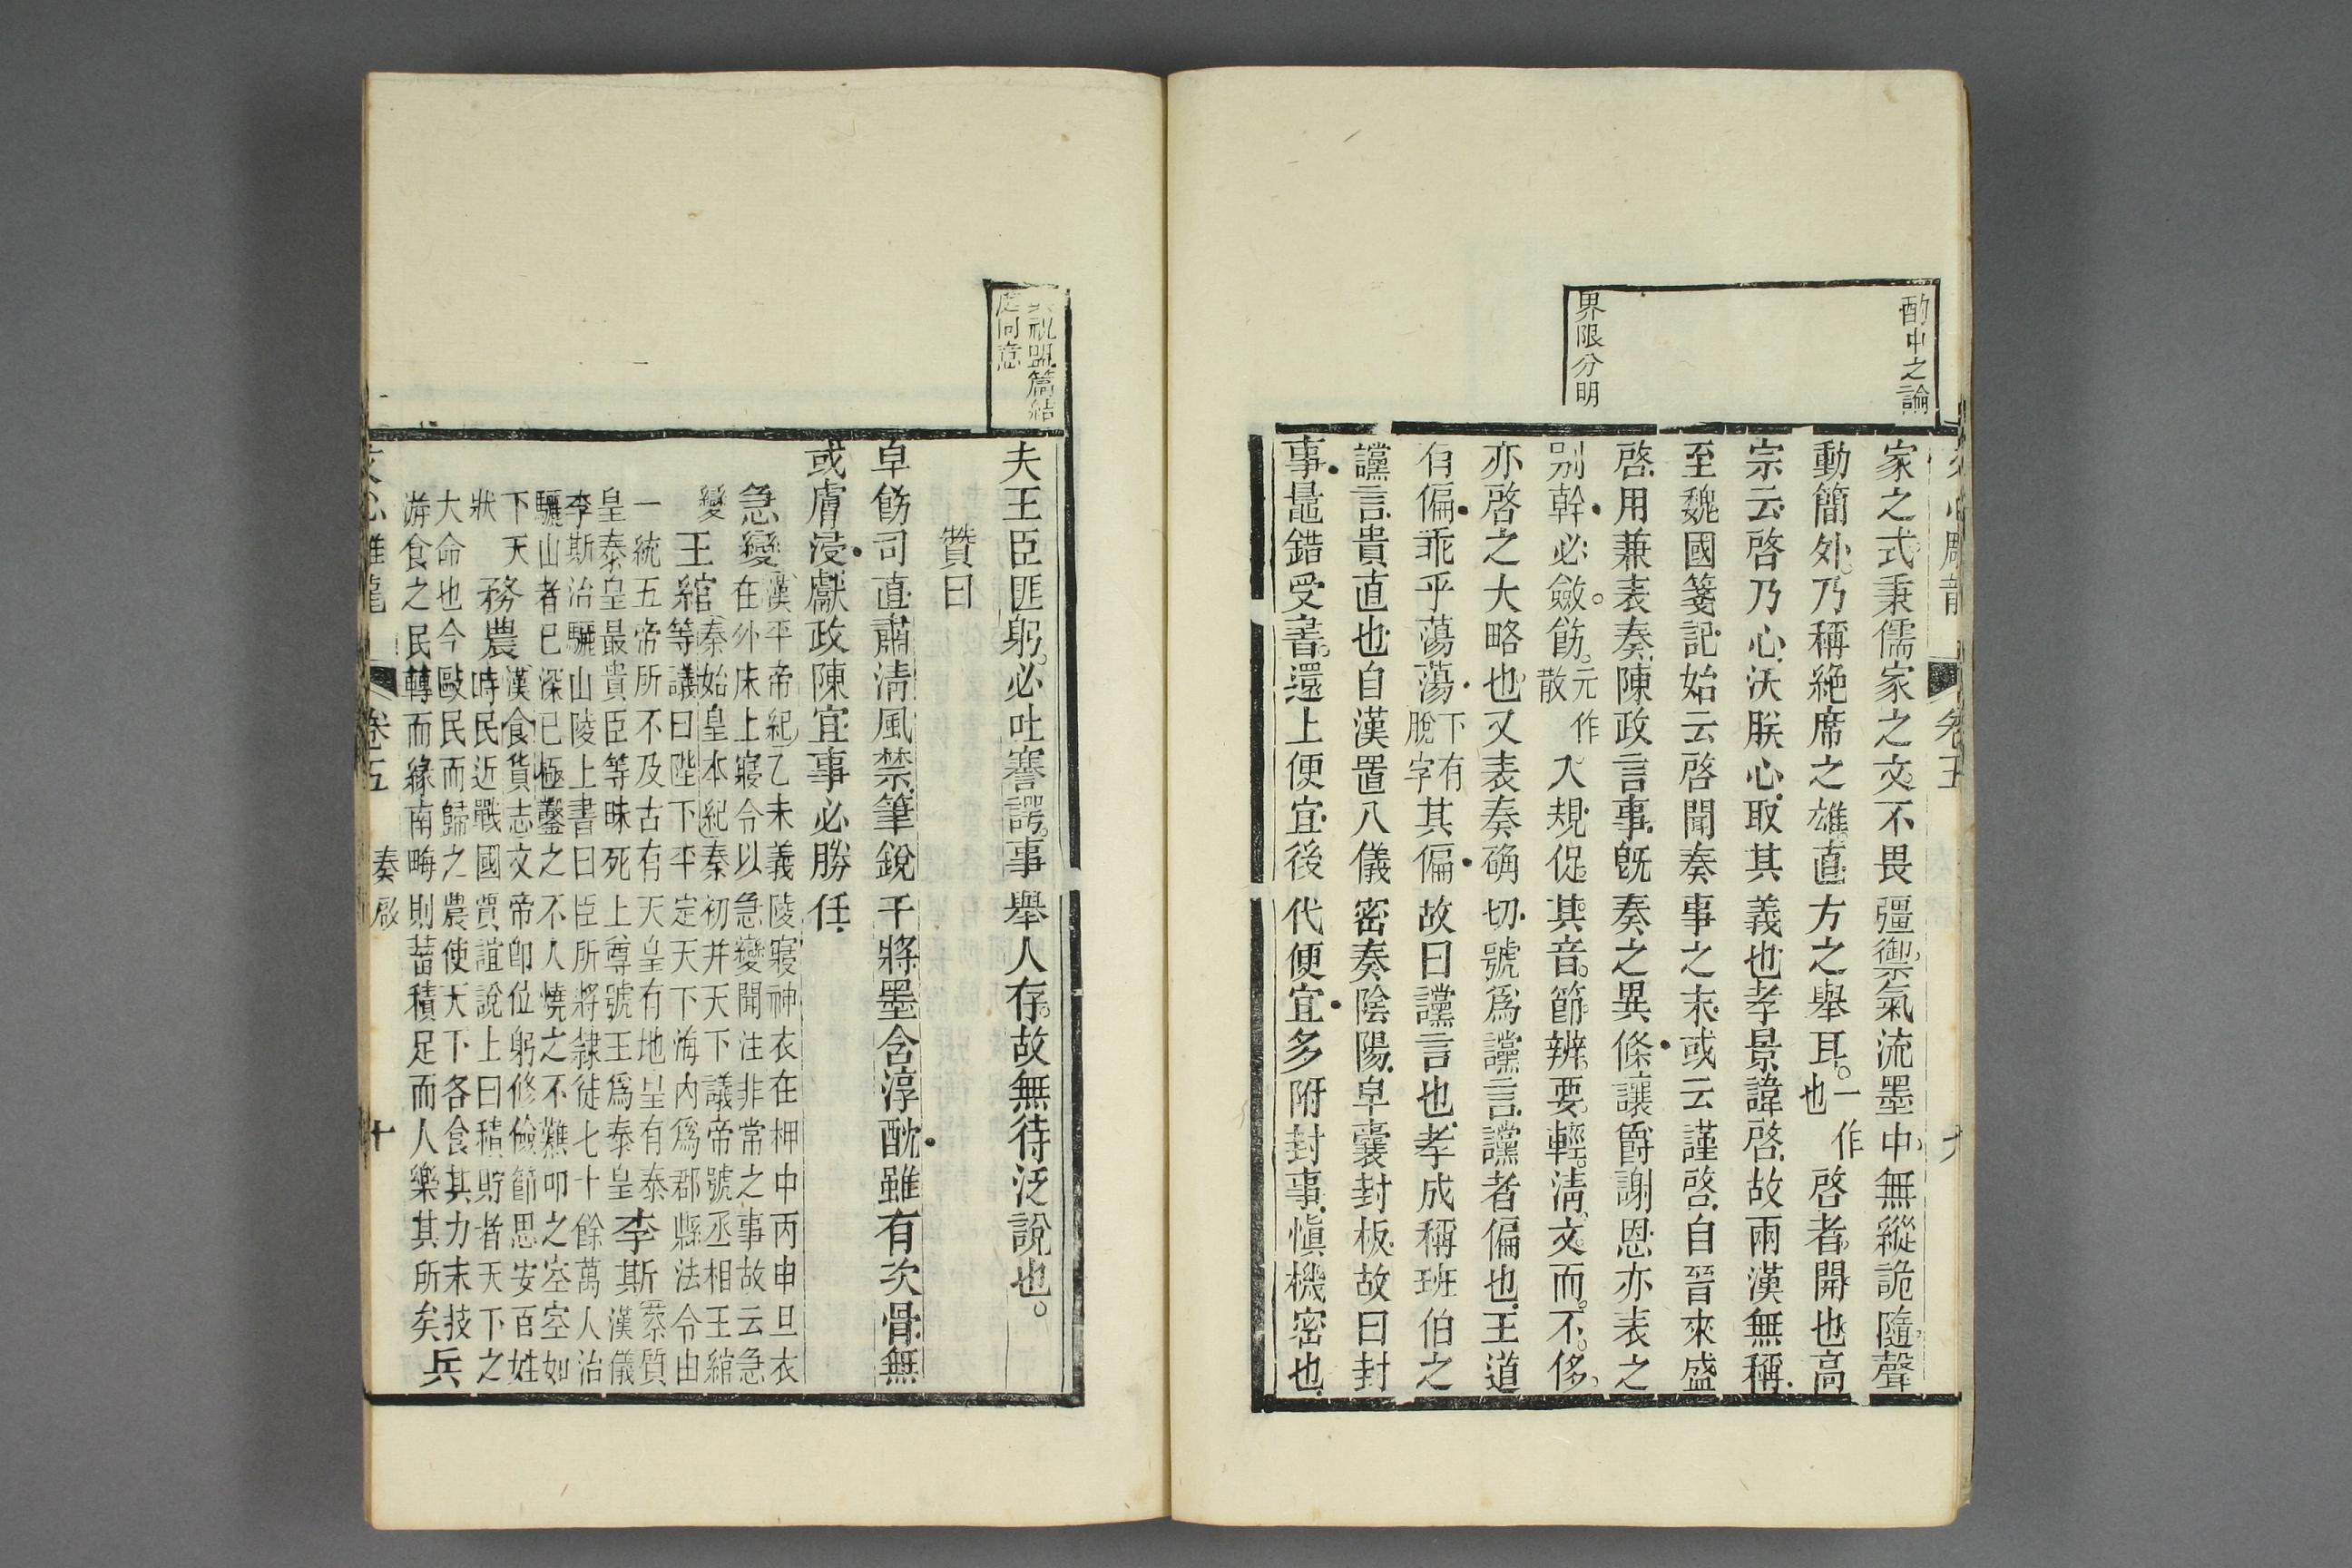 酌中之論
界限分明
家之式秉儒家之文不畏彊禦氣流墨中無縱詭隨聲
動簡外乃稱絕席之雄直方之舉耳一作也啓者開也高
宗云啓乃心沃朕心取其義也孝景諱啓故兩漢無稱
至魏國箋記始云啓聞奏事之末或云謹啓自晉來盛
啓用兼表奏陳政言事旣奏之異條讓爵謝恩亦表之
別幹必斂飭元作散入規促其音節辨要輕淸文而不侈
亦啓之大略也又表奏确切號爲讜言讜者偏也王道
有偏乖乎蕩蕩下有脫字其偏故曰讜言也孝成稱班伯之
讜言貴直也自漢置八儀密奏陰陽皁囊封板故曰封
事鼂錯受書還上便宜後代便宜多附封事愼機密也
祝盟篇結
同意
夫王臣匪躬必吐謇諤事舉人存故無待泛說也
贊曰
皁飭司直肅淸風禁筆銳干將墨含淳酖雖有次骨無
或膚浸獻政陳宜事必勝任
急變漢平帝紀乙未義陵寢神衣在柙中丙申旦衣
在外床上寢令以急變聞注非常之事故云急
變王綰秦始皇本紀秦初幷天下議帝號丞相王綰
等議曰陛下平定天下海內爲郡縣法令由
一統五帝所不及古有天皇有地皇有泰皇李斯蔡質
皇泰皇最貴臣等昧死上尊號王爲泰皇漢儀
李斯治驪山陵上書曰臣所將隸徒七十餘萬人治
驪山者已深已極鑿之不人燒之不難叩之空空如
下天務農漢食貨志文帝卽位躬修儉節思安百姓
狀時民近戰國賈誼說上曰積貯者天下之
大命也今敺民而歸之農使天下各食其力末技
游食之民轉而緣南畮則蓄積足而人樂其所矣兵
卷五 奏啟 十